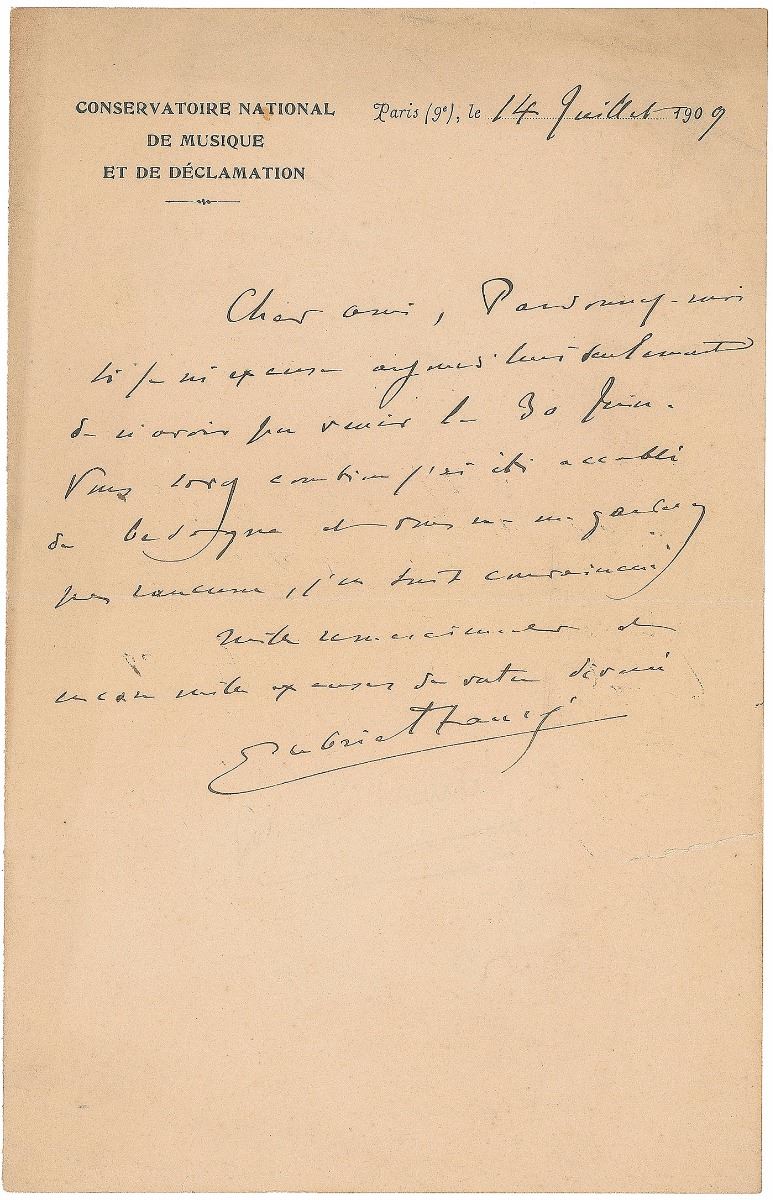 CONSERVATOIRE NATIONAL
DE MUSIQUE
ET DE DÉCLAMATION
Paris (9e), le 14 Juillet 1909
Cher ami, Pardonnez-moi
si je m'excuse aujourd'hui seulement
de n'avoir pu venir le 30 Juin.
Vous savez combien j'ai été accablé
de besogne et vous ne m'en garderez
pas rancune, j'en suis convaincu!
Mille remerciements et
encore mille excuses de votre dévoué
Gabriel Fauré